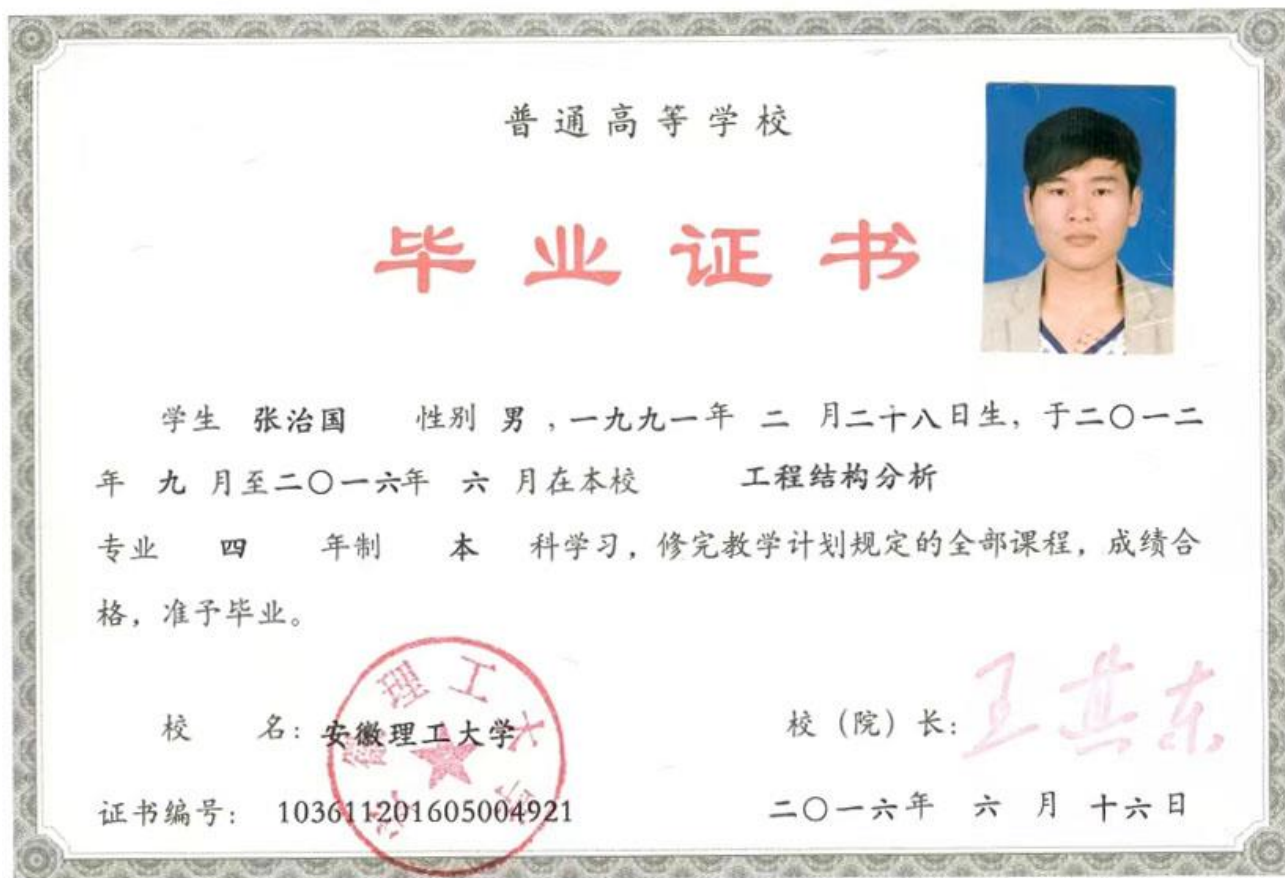 普通高等学校
毕业证书
学生 张治国 性别 男，一九九一年 二 月二十八日生，于二〇一二
年 九 月至二〇一六年 六 月在本校 工程结构分析
专业 四 年制 本 科学习，修完教学计划规定的全部课程，成绩合
格，准予毕业。
安徽理工大学
校 名：安徽理工大学 校（院）长：王其东
证书编号： 103611201605004921 二〇一六年 六 月 十六日